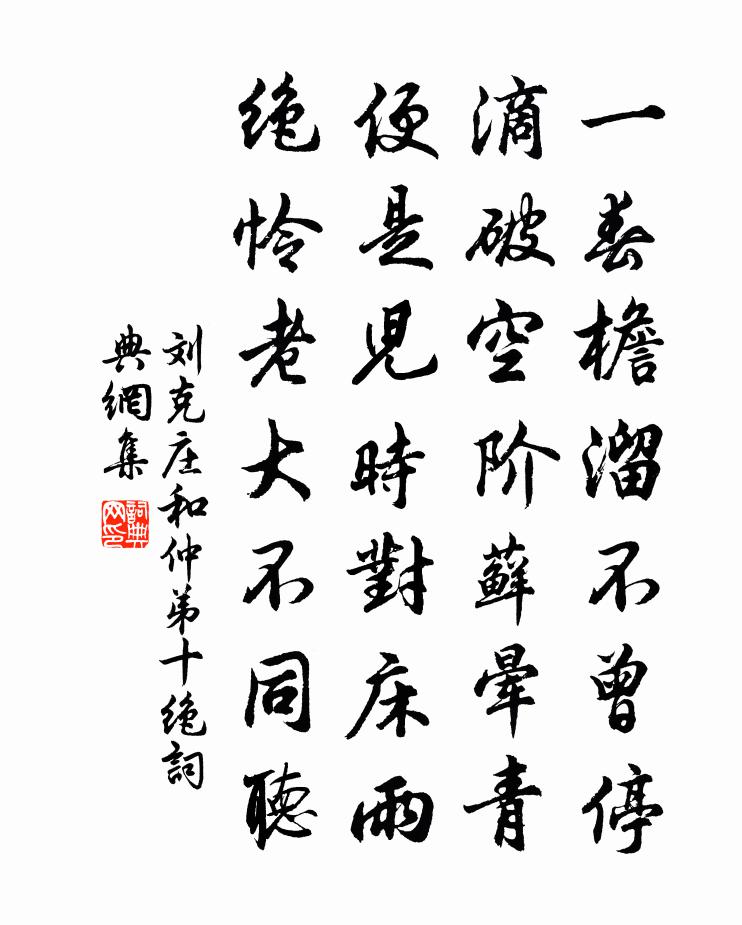 一春檐溜不曾停
滴破空阶藓晕青
便是児時對床雨
绝怜老大不同聽
刘克庄和仲弟十绝詞
典網集
詞典
网印